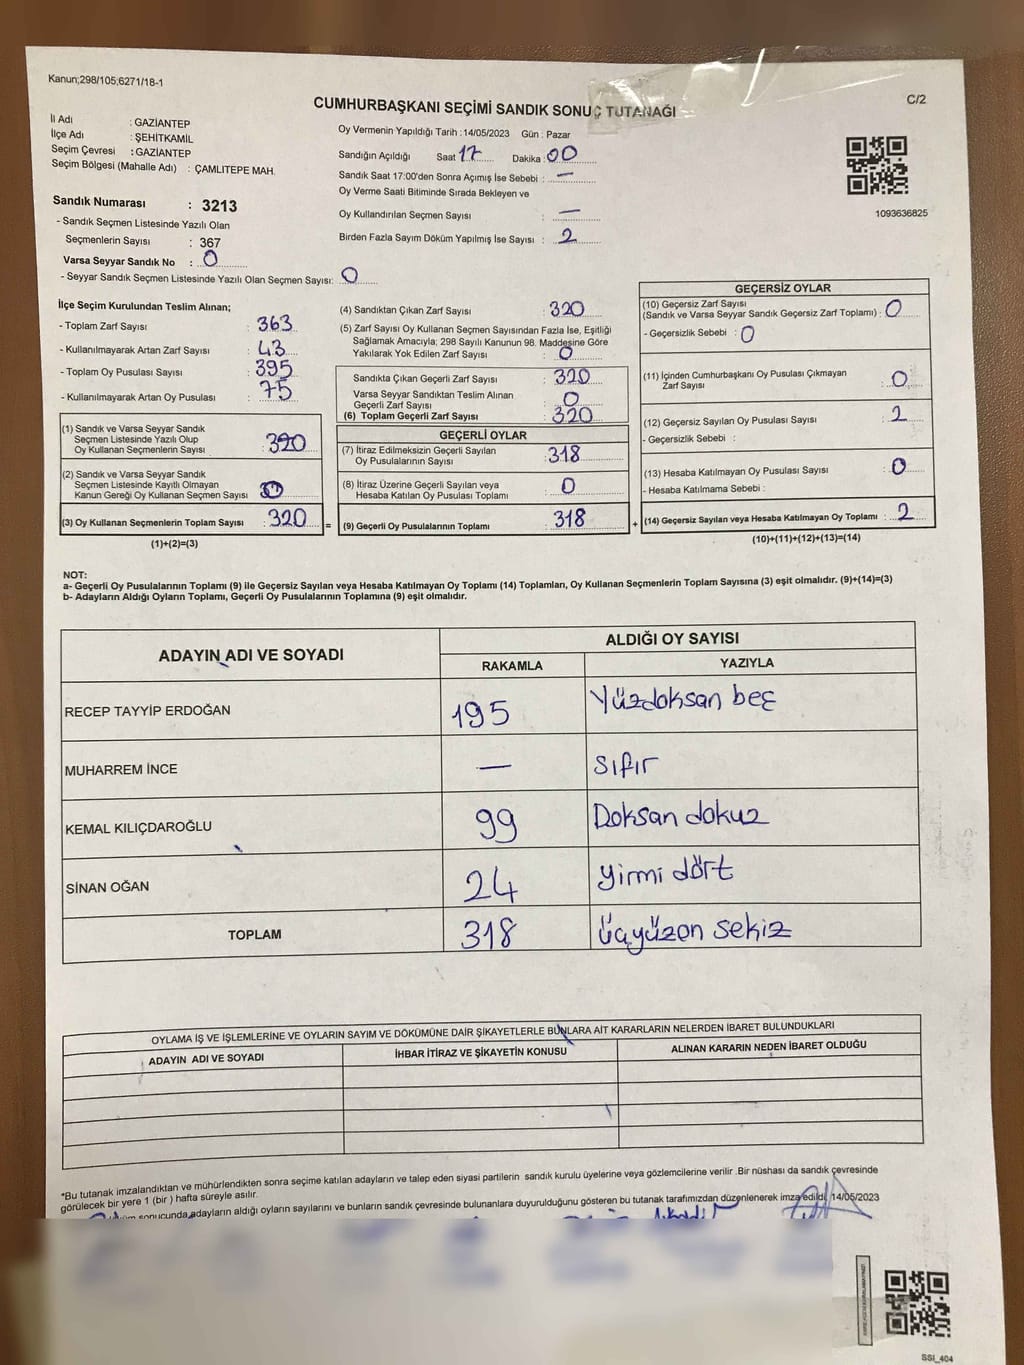 Kanun;298/105;6271/18-1
C/2
CUMHURBAŞKANI SEÇİMİ SANDIK SONUÇ TUTANAĞI
İl Adı : GAZİANTEP
İlçe Adı : ŞEHİTKAMİL
Seçim Çevresi : GAZİANTEP
Seçim Bölgesi (Mahalle Adı) : ÇAMLITEPE MAH.
Sandık Numarası : 3213
- Sandık Seçmen Listesinde Yazılı Olan
Seçmenlerin Sayısı : 367
Varsa Seyyar Sandık No : 0
- Seyyar Sandık Seçmen Listesinde Yazılı Olan Seçmen Sayısı: 0
Oy Vermenin Yapıldığı Tarih : 14/05/2023 Gün : Pazar
Sandığın Açıldığı Saat 17 Dakika : 00
Sandık Saat 17:00'den Sonra Açımış İse Sebebi : —
Oy Verme Saati Bitiminde Sırada Bekleyen ve
Oy Kullandırılan Seçmen Sayısı : —
Birden Fazla Sayım Döküm Yapılmış İse Sayısı : 2
1093636825
İlçe Seçim Kurulundan Teslim Alınan;
- Toplam Zarf Sayısı : 363
- Kullanılmayarak Artan Zarf Sayısı : 43
- Toplam Oy Pusulası Sayısı : 395
- Kullanılmayarak Artan Oy Pusulası : 75
(1) Sandık ve Varsa Seyyar Sandık
Seçmen Listesinde Yazılı Olup
Oy Kullanan Seçmenlerin Sayısı : 320
(2) Sandık ve Varsa Seyyar Sandık
Seçmen Listesinde Kayıtlı Olmayan
Kanun Gereği Oy Kullanan Seçmen Sayısı :
(3) Oy Kullanan Seçmenlerin Toplam Sayısı : 320 =
(1)+(2)=(3)
(4) Sandıktan Çıkan Zarf Sayısı : 320
(5) Zarf Sayısı Oy Kullanan Seçmen Sayısından Fazla İse, Eşitliği
Sağlamak Amacıyla; 298 Sayılı Kanunun 98. Maddesine Göre
Yakılarak Yok Edilen Zarf Sayısı : 0
Sandıkta Çıkan Geçerli Zarf Sayısı : 320
Varsa Seyyar Sandıktan Teslim Alınan
Geçerli Zarf Sayısı : 0
(6) Toplam Geçerli Zarf Sayısı : 320
GEÇERLİ OYLAR
(7) İtiraz Edilmeksizin Geçerli Sayılan
Oy Pusulalarının Sayısı : 318
(8) İtiraz Üzerine Geçerli Sayılan veya
Hesaba Katılan Oy Pusulası Toplamı : 0
(9) Geçerli Oy Pusulalarının Toplamı : 318 +
GEÇERSİZ OYLAR
(10) Geçersiz Zarf Sayısı
(Sandık ve Varsa Seyyar Sandık Geçersiz Zarf Toplamı) : 0
- Geçersizlik Sebebi : 0
(11) İçinden Cumhurbaşkanı Oy Pusulası Çıkmayan
Zarf Sayısı : 0
(12) Geçersiz Sayılan Oy Pusulası Sayısı : 2
- Geçersizlik Sebebi :
(13) Hesaba Katılmayan Oy Pusulası Sayısı : 0
- Hesaba Katılmama Sebebi :
(14) Geçersiz Sayılan veya Hesaba Katılmayan Oy Toplamı : 2
(10)+(11)+(12)+(13)=(14)
NOT:
a- Geçerli Oy Pusulalarının Toplamı (9) ile Geçersiz Sayılan veya Hesaba Katılmayan Oy Toplamı (14) Toplamları, Oy Kullanan Seçmenlerin Toplam Sayısına (3) eşit olmalıdır. (9)+(14)=(3)
b- Adayların Aldığı Oyların Toplamı, Geçerli Oy Pusulalarının Toplamına (9) eşit olmalıdır.
ADAYIN ADI VE SOYADI
ALDIĞI OY SAYISI
RAKAMLA YAZIYLA
RECEP TAYYİP ERDOĞAN 195 Yüzdoksan beş
MUHARREM İNCE — Sıfır
KEMAL KILIÇDAROĞLU 99 Doksan dokuz
SİNAN OĞAN 24 yirmi dört
TOPLAM 318 üçyüzon sekiz
OYLAMA İŞ VE İŞLEMLERİNE VE OYLARIN SAYIM VE DÖKÜMÜNE DAİR ŞİKAYETLERLE BUNLARA AİT KARARLARIN NELERDEN İBARET BULUNDUKLARI
ADAYIN ADI VE SOYADI İHBAR İTİRAZ VE ŞİKAYETİN KONUSU ALINAN KARARIN NEDEN İBARET OLDUĞU
*Bu tutanak imzalandıktan ve mühürlendikten sonra seçime katılan adayların ve talep eden siyasi partilerin sandık kurulu üyelerine veya gözlemcilerine verilir .Bir nüshası da sandık çevresinde
görülecek bir yere 1 (bir ) hafta süreyle asılır.
sonucunda adayların aldığı oyların sayılarını ve bunların sandık çevresinde bulunanlara duyurulduğunu gösteren bu tutanak tarafımızdan düzenlenerek imza edildi. 14/05/2023
SSI_404